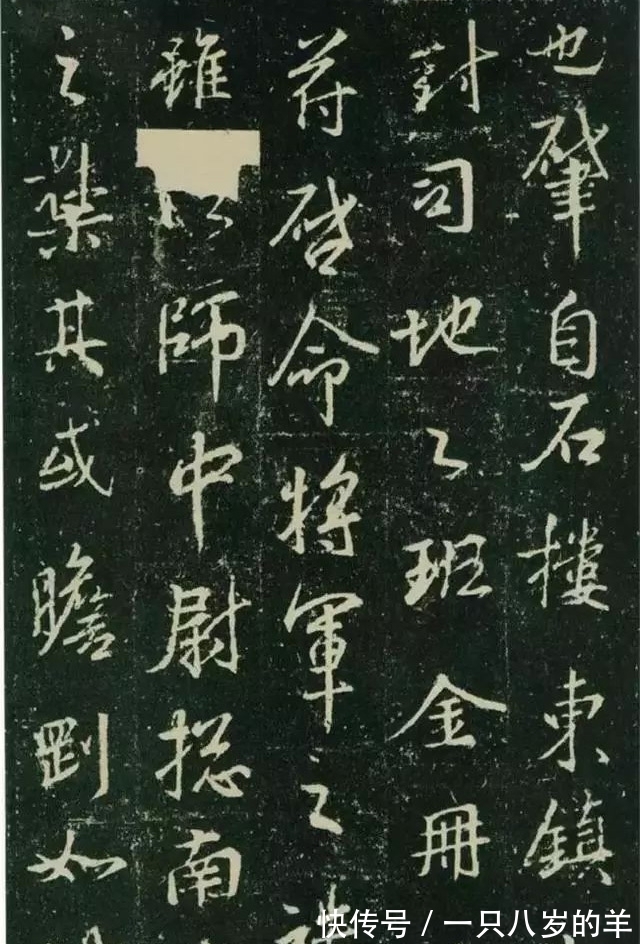 也肇自石樓東鎮
對司地之班金冊
符啓命將軍之
雖以師中尉揔南
之其或瞻剛如
快传号 / 一只八岁的羊